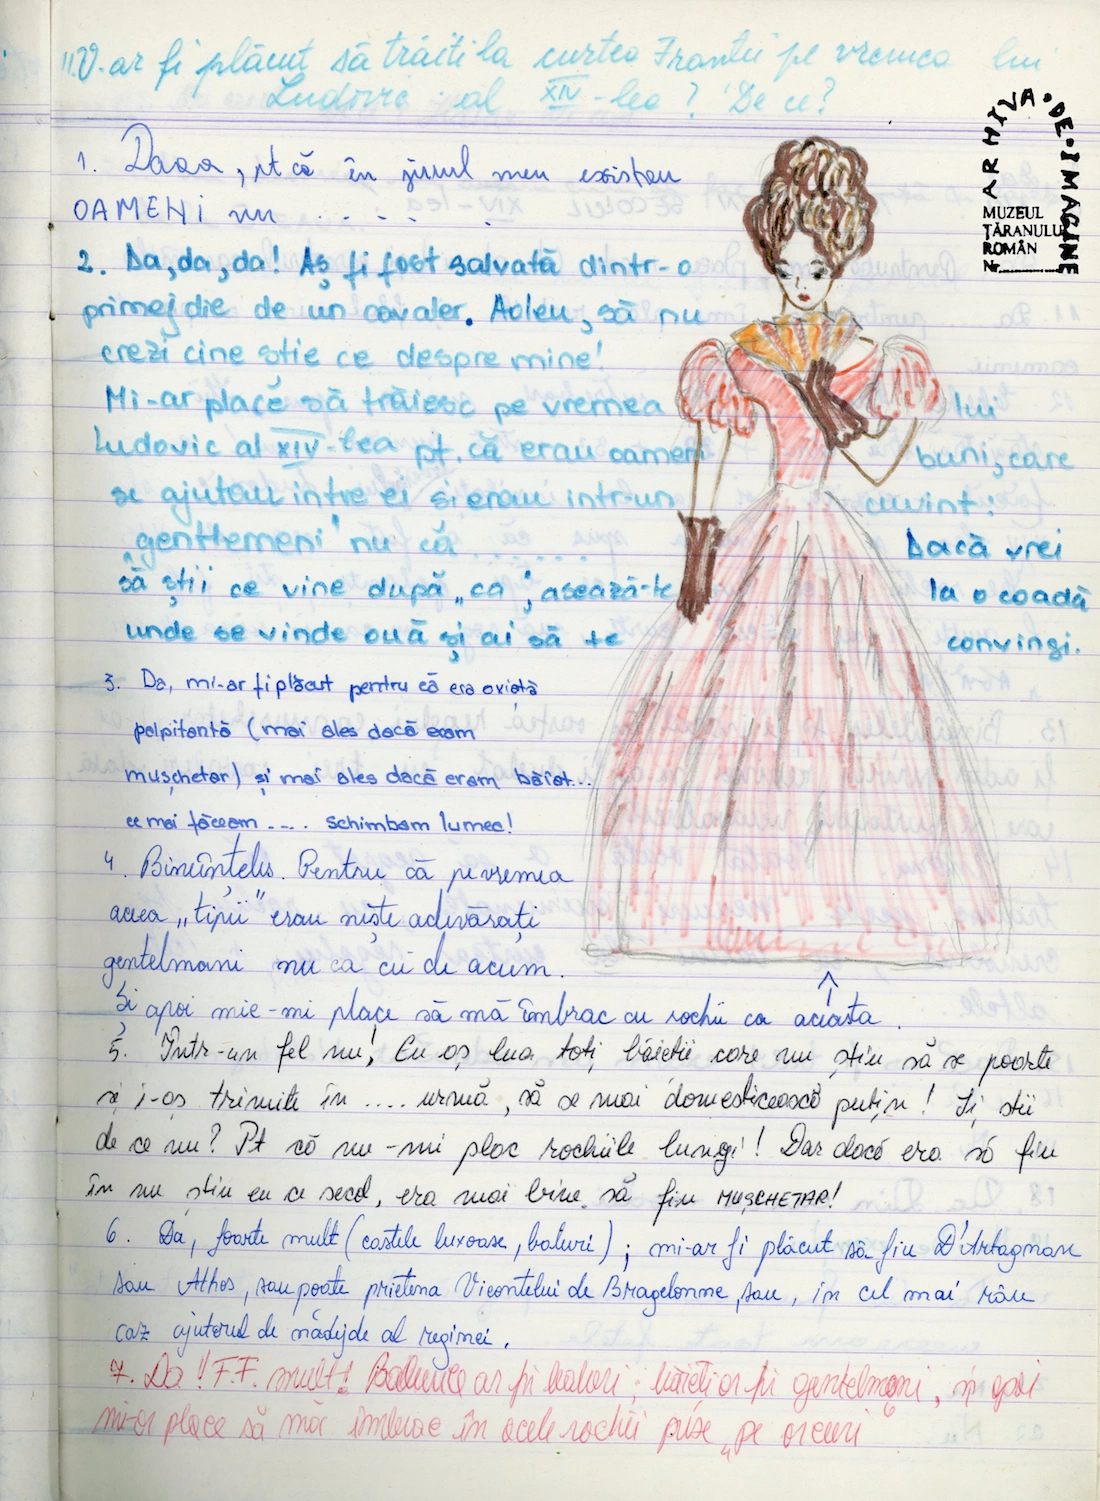 "V-ar fi plăcut să trăiti la curtea Frantei pe vremea lui
Ludovic al XIV-lea? De ce?
ARHIVA • DE • IMAGINE
MUZEUL
ȚĂRANULUI
ROMÂN
Nr.
1. Daaa, pt că în jurul meu existau
OAMENI nu . . . .
2. Da, da, da! Aș fi fost salvată dintr-o
primejdie de un cavaler. Aoleu, să nu
crezi cine știe ce despre mine!
Mi-ar place să trăiesc pe vremea lui
Ludovic al XIV-lea pt. că erau oameni buni, care
se ajutau intre ei si erau intr-un cuvint:
„gentlemeni" nu ca . . . . . . Dacă vrei
să știi ce vine după „ca", asează-te la o coadă
unde se vinde ouă și ai să te convingi.
3. Da, mi-ar fi plăcut pentru că era o viață
palpitantă (mai ales dacă eram
mușchetar) și mai ales dacă eram băiat...
ce mai făceam .... schimbam lumea!
4. Bineînțeles. Pentru că pe vremea
aceea „tipii" erau niște adevărați
gentelmani nu ca cei de acum.
Și apoi mie-mi place să mă îmbrac cu rochii ca aceasta.
5. Într-un fel nu! Eu aș lua toți băietii care nu știu să se poarte
și i-aș trimite în .... urmă, să se mai domesticească puțin! Ți știi
de ce nu? Pt că nu-mi plac rochiile lungi! Dar dacă era să fiu
în nu știu eu ce secol, era mai bine să fiu MUȘCHETAR!
6. Da, foarte mult (castele luxoase, baluri); mi-ar fi plăcut să fiu D'Artagnan
sau Athos, sau poate prietena Vicontelui de Bragelonne, sau, in cel mai rău
caz ajutorul de nădejde al reginei.
7. Da!! F.F. mult! Balurile ar fi baluri; băieții ar fi gentelmani, și apoi
mi-ar place să mă îmbrac în acele rochii puse „pe arcuri"